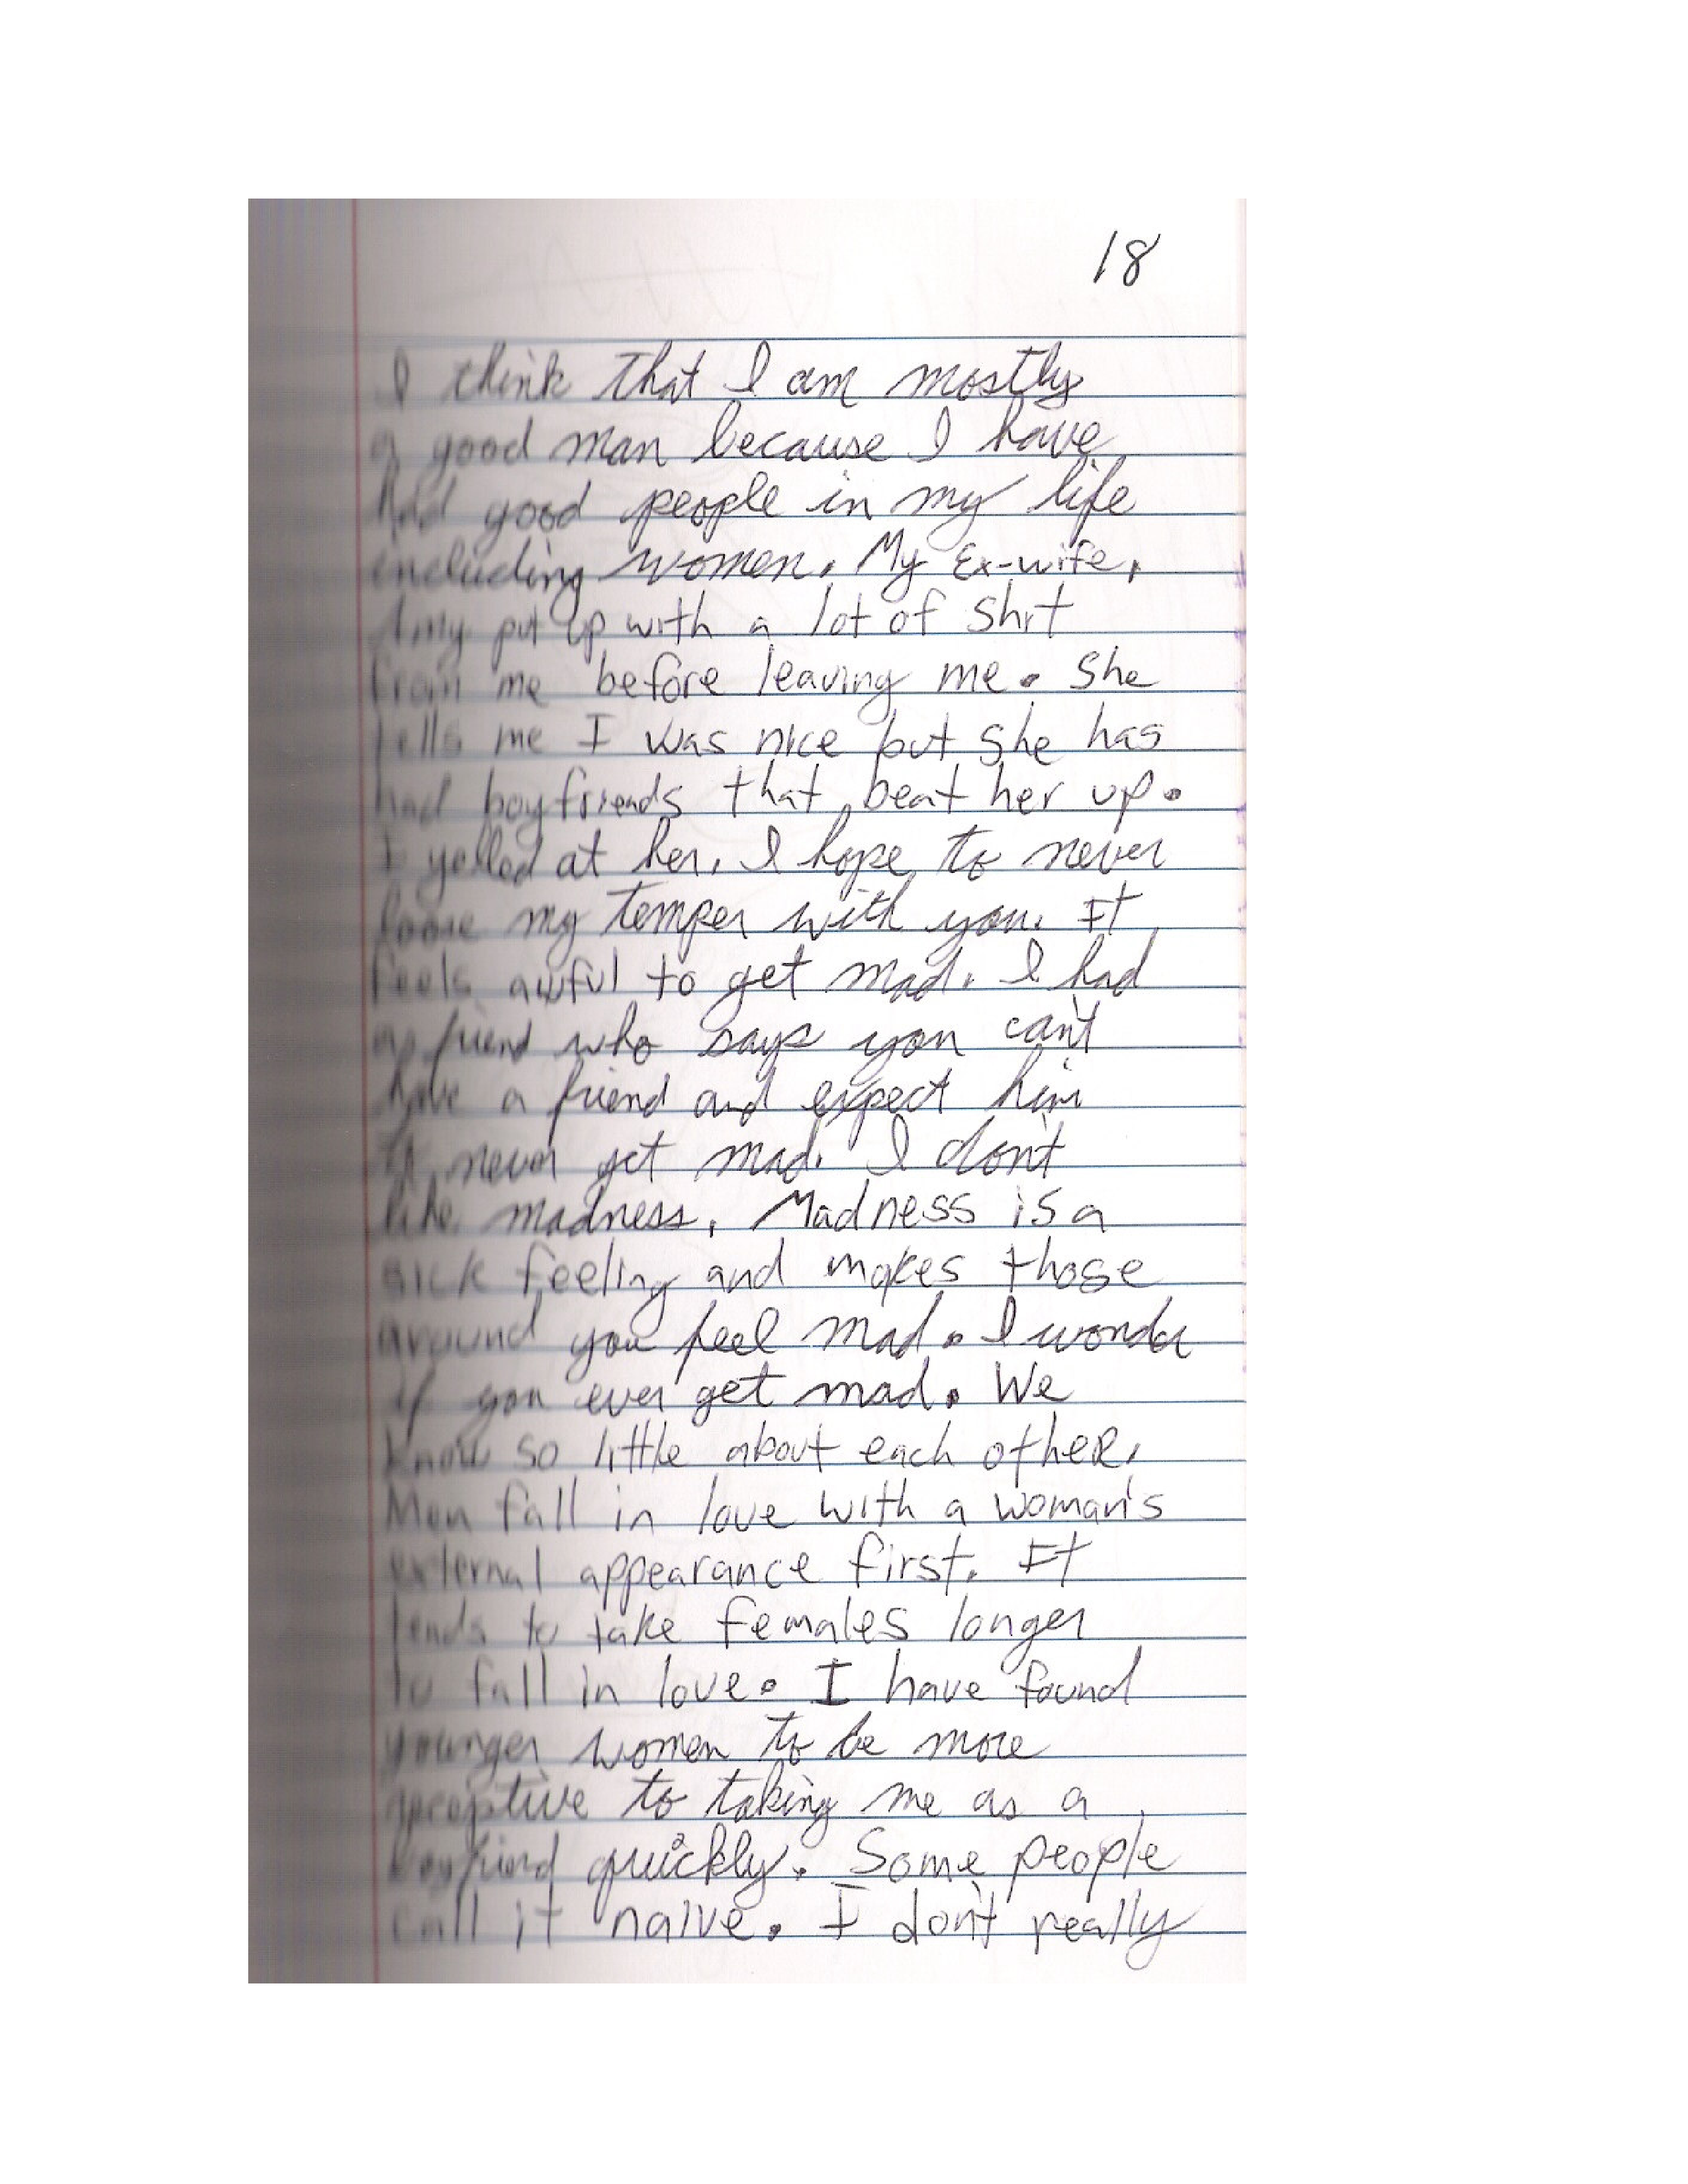 18
I think that I am mostly
a good man because I have
had good people in my life
including women. My Ex-wife,
Amy put up with a lot of shit
from me before leaving me. She
tells me I was nice but she has
had boyfriends that beat her up.
I yelled at her. I hope to never
loose my temper with you. It
feels awful to get mad. I had
a friend who says you can't
have a friend and expect him
to never get mad. I don't
like madness. Madness is a
sick feeling and makes those
around you feel mad. I wonder
if you ever get mad. We
know so little about each other.
Men fall in love with a woman's
external appearance first. It
tends to take females longer
to fall in love. I have found
younger women to be more
receptive to taking me as a
boyfriend quickly. Some people
call it naive. I don't really